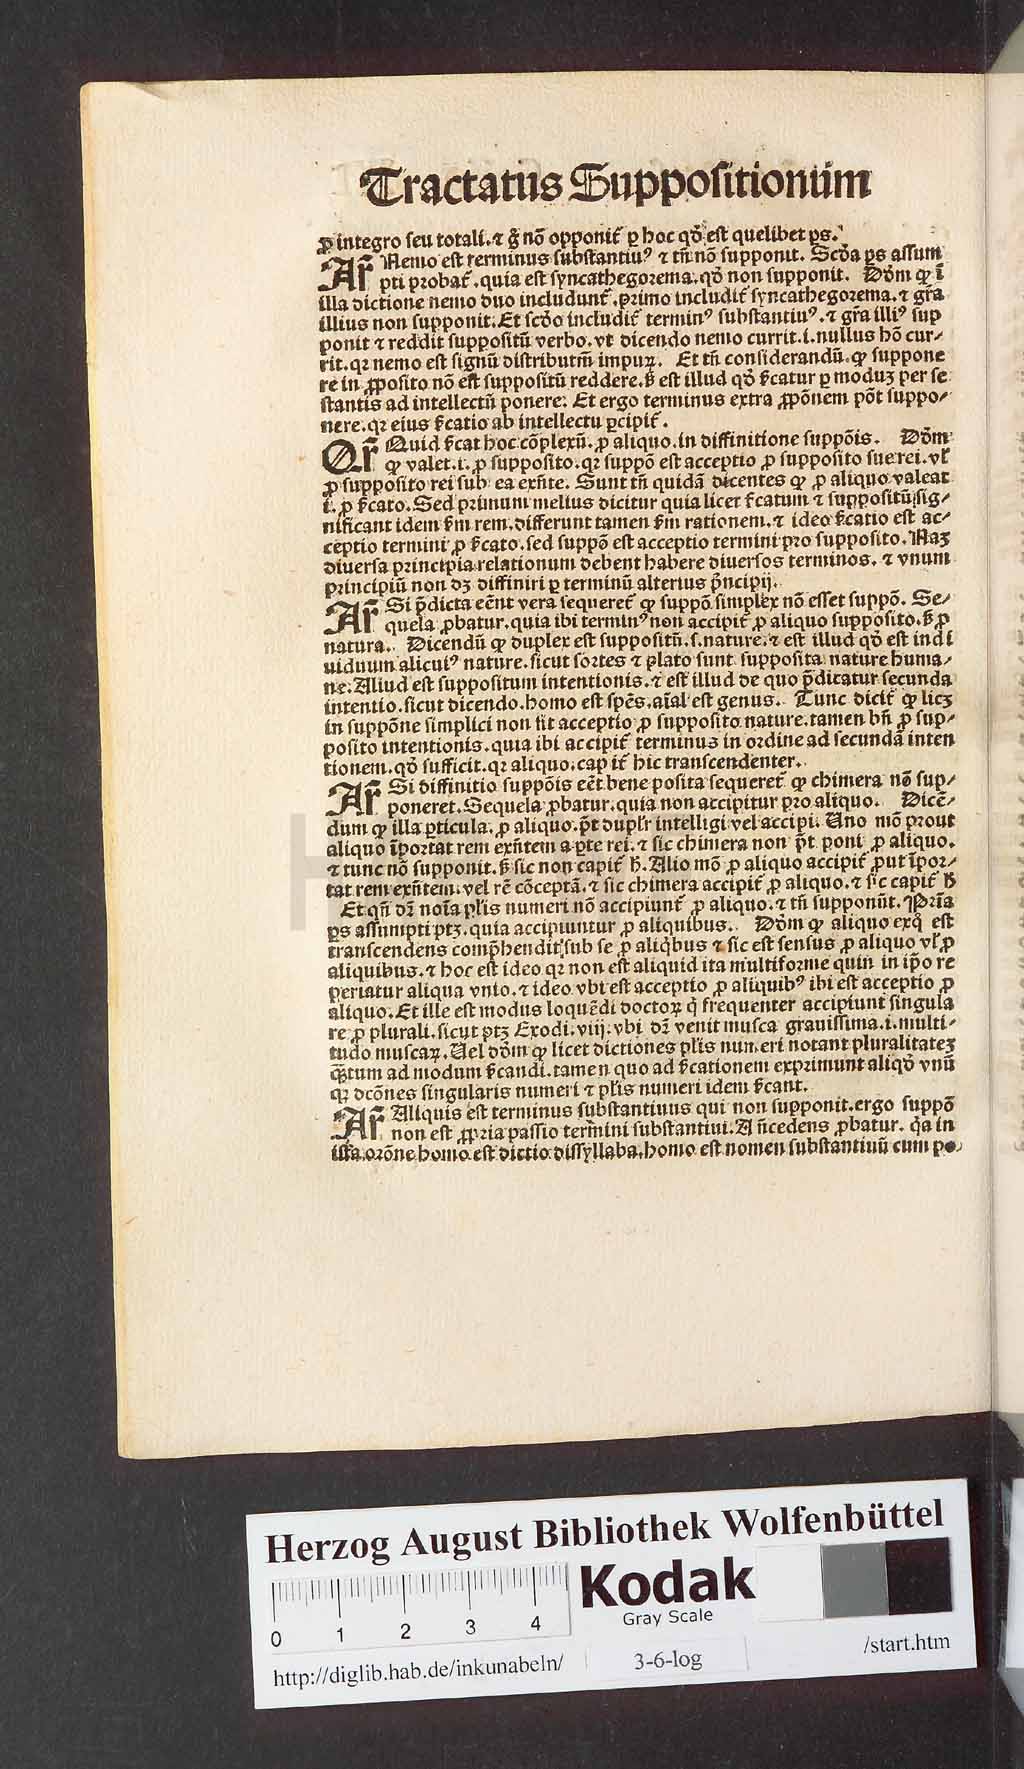 Tractatus Suppositionum
ꝓ integro seu totali.⁊ gͥ nō opponit̄ ꝑ hoc qđ est quelibet ps.
Ar̄ Nemo est terminus substantiuꝰ ⁊ tn̄ nō supponit. Scđa ps assum
pti probat̄.quia est syncathegorema.qđ non supponit. Dōm ꝙ ī
illa dictione nemo duo includunt̄.primo includit̄ syncathegorema.⁊ gr̄a
illius non supponit.Et scđo includit̄ terminꝰ substantiuꝰ.⁊ gr̄a illiꝰ sup
ponit ⁊ reddit suppositū verbo.vt dicendo nemo currit.i.nullus hō cur-
rit.qꝛ nemo est signū distributm̄ impuꝝ. Et tn̄ considerandū.ꝙ suppone
re in ꝓposito nō est suppositū reddere.ß est illud qđ ßcatur ꝑ moduꝫ per se
stantis ad intellectū ponere. Et ergo terminus extra ꝓpōnem pōt suppo-
nere.qꝛ eius ßcatio ab intellectu ꝑcipit̄.
Qr̄ Quid ßcat hoc cōplexū.ꝓ aliquo.in diffinitione suppōis. Dōm
ꝙ valet.i.ꝓ supposito.qꝛ suppō est acceptio ꝓ supposito sue rei.vl̄
ꝓ supposito rei sub ea exn̄te. Sunt tn̄ quidā dicentes ꝙ ꝓ aliquo valeat
i.ꝓ ßcato.Sed primum melius dicitur quia licet ßcatum ⁊ suppositū sig-
nificant idem ßm rem.differunt tamen ßm rationem.⁊ ideo ßcatio est ac-
ceptio termini ꝓ ßcato.sed suppō est acceptio termini pro supposito.Naꝫ
diuersa principia relationum debent habere diuersos terminos.⁊ vnum
principiū non dꝫ diffiniri ꝑ terminū alterius pͥncipij.
Ar̄ Si p̄dicta eēnt vera sequeret̄ ꝙ suppō simplex nō esset suppō. Se-
quela ꝓbatur.quia ibi terminꝰ non accipit̄ ꝓ aliquo supposito.ß ꝓ
natura. Dicendū ꝙ duplex est suppositū.s.nature.⁊ est illud qđ est indi
uiduum alicuiꝰ nature.sicut sortes ⁊ plato sunt supposita nature huma-
ne.Aliud est suppositum intentionis.⁊ est illud de quo p̄dicatur secunda
intentio.sicut dicendo.homo est spēs.aīal est genus. Tunc dicit̄ ꝙ licꝫ
in suppōne simplici non fit acceptio ꝓ supposito nature.tamen bn̄ ꝓ sup-
posito intentionis.quia ibi accipit̄ terminus in ordine ad secundā inten
tionem.qđ sufficit.qꝛ aliquo.cap it̄ hic transcendenter.
Ar̄ Si diffinitio suppōis eēt bene posita sequeret̄ ꝙ chimera nō sup-
poneret.Sequela ꝓbatur.quia non accipitur pro aliquo. Dicē-
dum ꝙ illa ꝑticula.ꝓ aliquo.pt̄ duplr̄ intelligi vel accipi. Uno mō prout
aliquo īportat rem exn̄tem a ꝑte rei.⁊ sic chimera non pt̄ poni ꝓ aliquo.
⁊ tunc nō supponit.ß sic non capit̄ ħ.Alio mō ꝓ aliquo accipit̄ ꝓut īpor-
tat rem exn̄tem.vel rē cōceptā.⁊ sic chimera accipit̄ ꝓ aliquo.⁊ sic capit̄ ħ
Et qn̄ dr̄ noīa pl̄is numeri nō accipiunt̄ ꝓ aliquo.⁊ tn̄ supponūt.Prīa
ps assumpti ptꝫ.quia accipiuntur ꝓ aliquibus. Dōm ꝙ aliquo exq̊ est
transcendens comp̄hendit sub se ꝓ aliqͥbus ⁊ sic est sensus ꝓ aliquo vl̄ ꝓ
aliquibus.⁊ hoc est ideo qꝛ non est aliquid ita multiforme quin in ip̄o re
periatur aliqua vnio.⁊ ideo vbi est acceptio ꝓ aliquibꝰ ibi est acceptio ꝓ
aliquo.Et ille est modus loquēdi doctoꝝ qͥ frequenter accipiunt singula
re ꝓ plurali.sicut ptꝫ Exodi.viij.vbi dr̄ venit musca grauissima.i.multi-
tudo muscaꝝ.Uel dōm ꝙ licet dictiones pl̄is numeri notant pluralitateꝫ
qͣꝫtum ad modum ßcandi.tamen quo ad ßcationem exprimunt aliqđ vnū
qꝛ dcōnes singularis numeri ⁊ pl̄is numeri idem ßcant.
Ar̄ Aliquis est terminus substantiuus qui non supponit.ergo suppō
non est ꝓpria passio termini substantiui.An̄cedens ꝓbatur. qͥa in
ista orōne homo est dictio dissyllaba.homo est nomen substantiuū cum po-
Herzog August Bibliothek Wolfenbüttel
Kodak
Gray Scale
0 1 2 3 4
http://diglib.hab.de/inkunabeln/ 3-6-log /start.htm